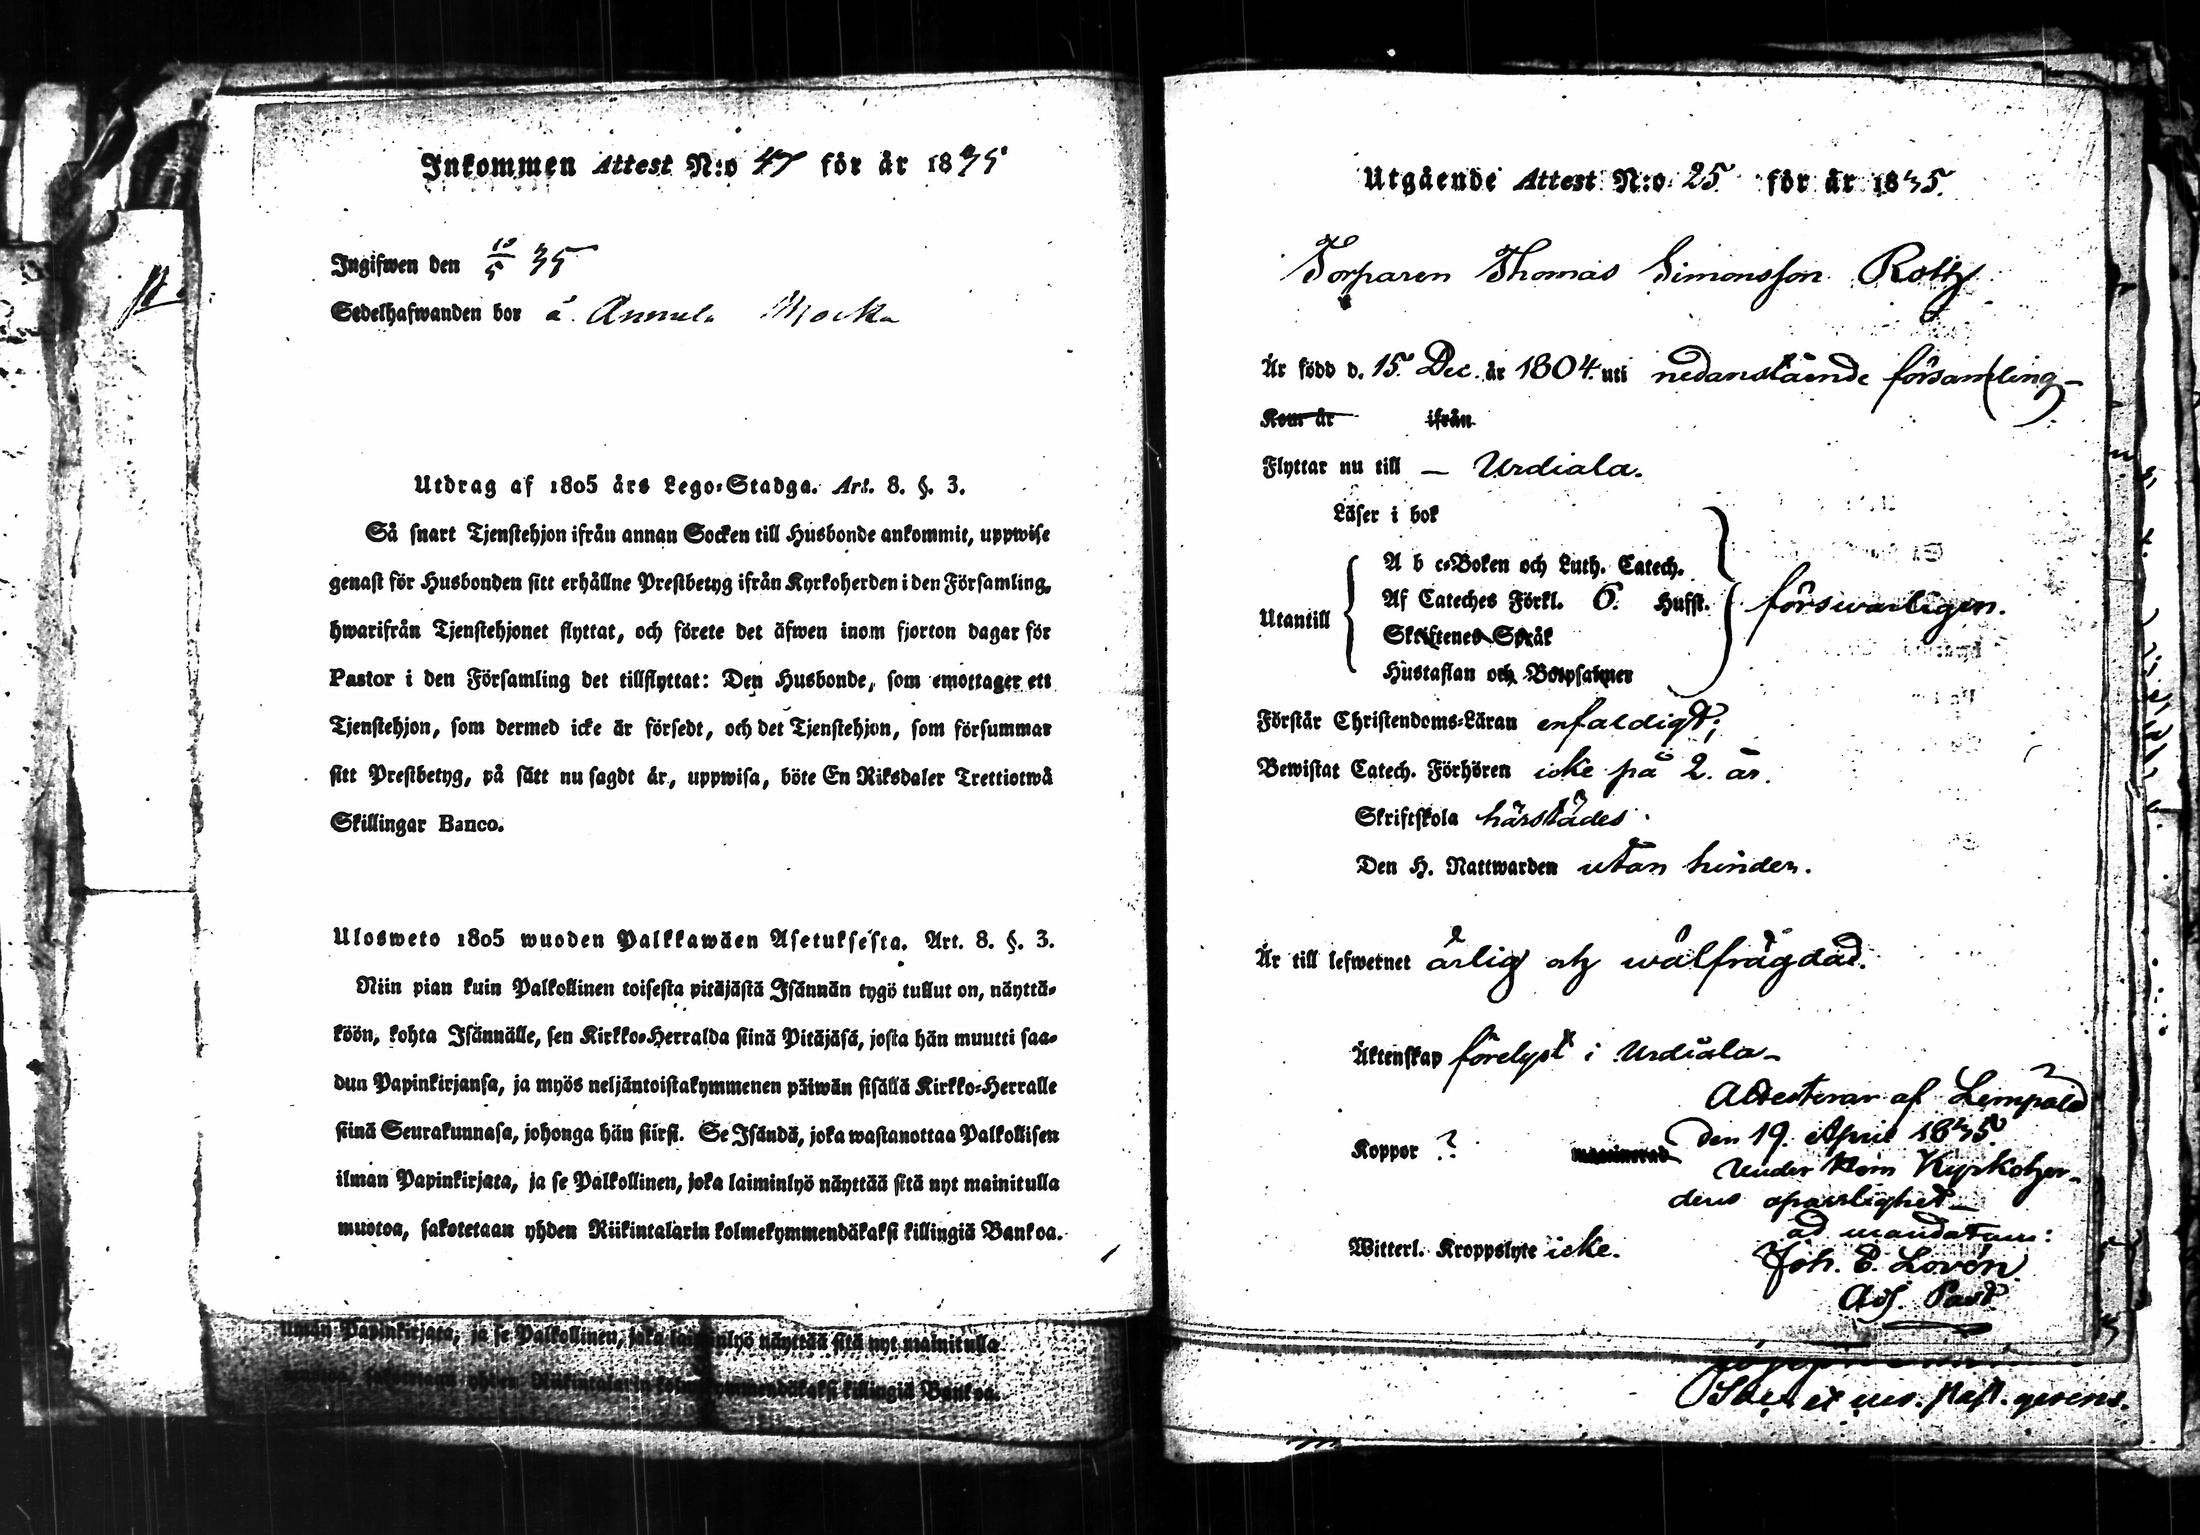 Inkommen Attest N:o 47 för år 1835
Ingifwen den 10/5 35
Sedelhafwanden bor å Annula
Utdrag af 1805 års Lego-Stadga. Art. 8. §. 3.
Så snart Tjenstehjon ifrån annan Socken till Husbonde ankommit, uppwise
genast för Husbonden sitt erhållne Prestbetyg ifrån Kyrkoherden i den Församling,
hwarifrån Tjenstehjonet flyttat, och förete det äfwen inom fjorton dagar för
Pastor i den Församling det tillflyttat: Den Husbonde, som emottager ett
Tjenstehjon, som dermed icke är försedt, och det Tjenstehjon, som försummar
sitt Prestbetyg, på sätt nu sagdt är, uppwisa, böte En Riksdaler Trettiotwå
Skillingar Banco.
Ulosweto 1805 wuoden Palkkawäen Asetuksesta. Art. 8. §. 3.
Niin pian kuin Palkollinen toisesta pitäjästä Isännän tygö tullut on, näyttä-
köön, kohta Isännälle, sen Kirkko-Herralda siinä Pitäjäsä, josta hän muutti saa-
dun Papinkirjansa, ja myös neljäntoistakymmenen päiwän sisällä Kirkko-Herralle
siinä Seurakunnasa, johonga hän siirsi. Se Isändä, joka wastanottaa Palkollisen
ilman Papinkirjata, ja se Palkollinen, joka laiminlyö näyttää sitä nyt mainitulla
muotoa, sakotetaan yhden Riikintalarin kolmekymmendäkaksi killingiä Bankoa.
ilman Papinkirjata, ja se Palkollinen, joka laiminlyö näyttää sitä nyt mainitulla
muotoa, sakotetaan yhden Riikintalarin kolmekymmendäkaksi killingiä Bankoa.
Utgående Attest N:o 25 för år 1835.
Torparen Thomas Simonsson Rotty
Är född d. 15. Dec. år 1804. uti nedanstående församling-
Kom år ifrån
Flyttar nu till — Urdiala.
Läser i bok
A b c-Boken och Luth. Catech.
Af Cateches Förkl. 6. Hufst.
Utantill försvarligen.
Skriftenes Språk
Hustaflan och Botpsalmer
Förstår Christendoms-Läran enfaldigt;
Bewistat Catech. Förhören icke på 2. år.
Skriftskola härstädes.
Den H. Nattwarden utan hinder.
Är till lefwernet ärlig och wälfrägdad.
Äktenskap förelyst i Urdiala—
Attesterar af Lempälä
den 19. April 1835.
Koppor ?
Under Herr Kyrkoher-
dens opasslighet—
ad mandatum:
Witterl. Kroppslyte icke.
Joh. E. Lovén
Adj. Past.